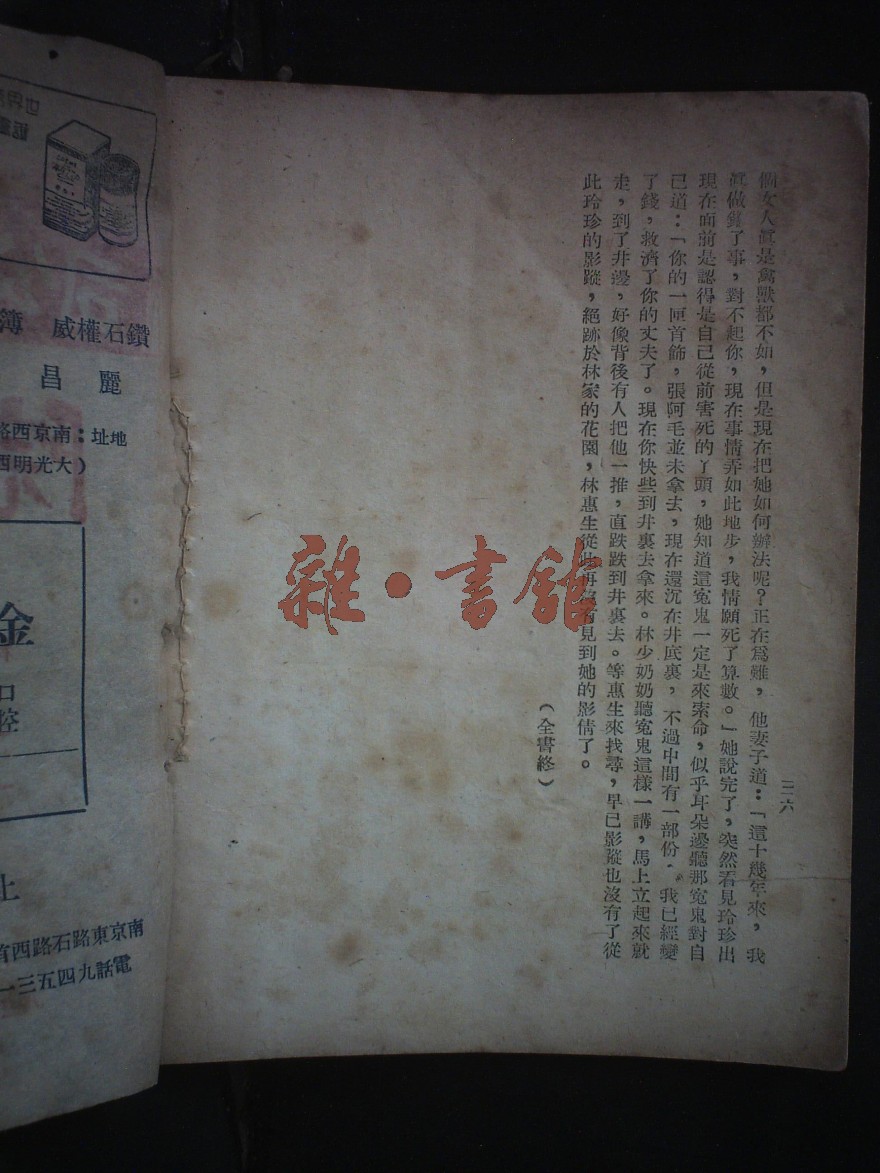 三六
個女人眞是禽獸都不如，但是現在把她如何辦法呢？正在爲難，他妻子道：「這十幾年來，我
眞做錯了事，對不起你，現在事情弄如此地步，我情願死了算數。」她說完了，突然看見玲珍出
現在面前是認得是自己從前害死的丫頭，她知道這寃鬼一定是來索命，似乎耳朵邊聽那寃鬼對自
己道：「你的一匣首飾，張阿毛並未拿去，現在還沉在井底裏，不過中間有一部份，我已經變
了錢，救濟了你的丈夫了。現在你快些到井裏去拿來。林少奶奶聽寃鬼這樣一講，馬上立起來就
走，到了井邊，好像背後有人把他一推，直跌跌到井裏去。等惠生來找尋，早已影蹤也沒有了從
此玲珍的影蹤，絕跡於林家的花園，林惠生從此再沒有見到她的影倩了。
（全書終）
雜·書館
世界
鑽石權威
簿
麗昌
地址：南京西路
（大光明西
金
口
腔
南京東路石路西首
電話九四五三一